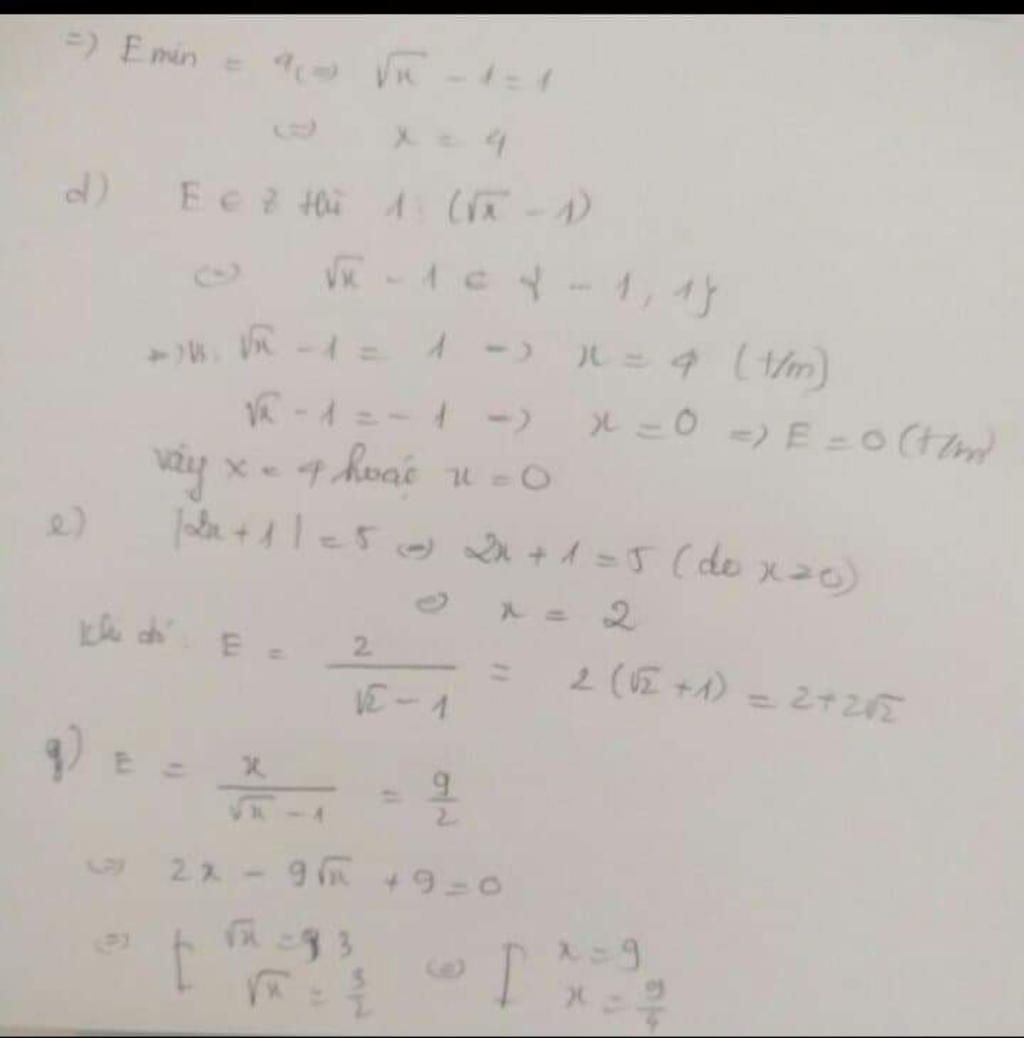 => E min = 4 <=> √x - 1 = 1
<=> x = 4
d) E ∈ Z thì 1 ⋮ (√x - 1)
<=> √x - 1 ∈ {-1, 1}
√x - 1 = 1 -> x = 4 (t/m)
√x - 1 = -1 -> x = 0 => E = 0 (t/m)
vậy x = 4 hoặc x = 0
e) |2x + 1| = 5 <=> 2x + 1 = 5 (do x ≥ 0)
<=> x = 2
Khi đó: E = 2/(√2 - 1) = 2(√2 + 1) = 2 + 2√2
g) E = x/(√x - 1) = 9/2
<=> 2x - 9√x + 9 = 0
<=> [ √x = 3 <=> [ x = 9
√x = 3/2 x = 9/4